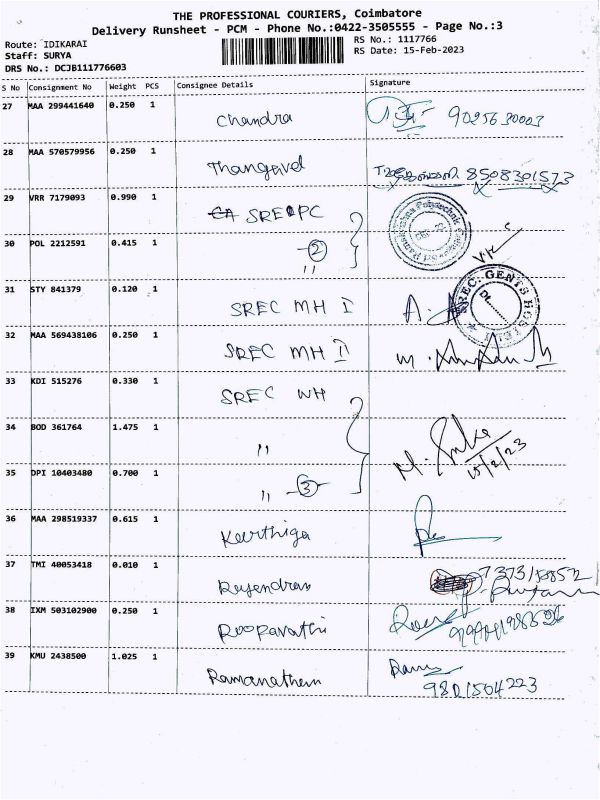 THE PROFESSIONAL COURIERS, Coimbatore
Delivery Runsheet - PCM - Phone No.:0422-3505555 - Page No.:3
Route: IDIKARAI
RS No.: 1117766
Staff: SURYA
RS Date: 15-Feb-2023
DRS No.: DCJB111776603
S No Consignment No Weight PCS Consignee Details Signature
27 MAA 299441640 0.250 1 Chandra 9025630003
28 MAA 570579956 0.250 1 Thangavel 8508301573
29 VRR 7179093 0.990 1 SREPC
30 POL 2212591 0.415 1 " 2
31 STY 841379 0.120 1 SREC MH I A.
SREC-GENTS HOSTEL
32 MAA 569438106 0.250 1 SREC MH II M.
33 KDI 515276 0.330 1 SREC WH
34 BOD 361764 1.475 1 " M.
15/2/23
35 DPI 10403480 0.700 1 " 3
36 MAA 298519337 0.615 1 Keerthiga
37 TMI 40053418 0.010 1 Rajendran
38 IXM 503102900 0.250 1 Rooparathi
39 KMU 2438500 1.025 1 Ramanathan
9801504223